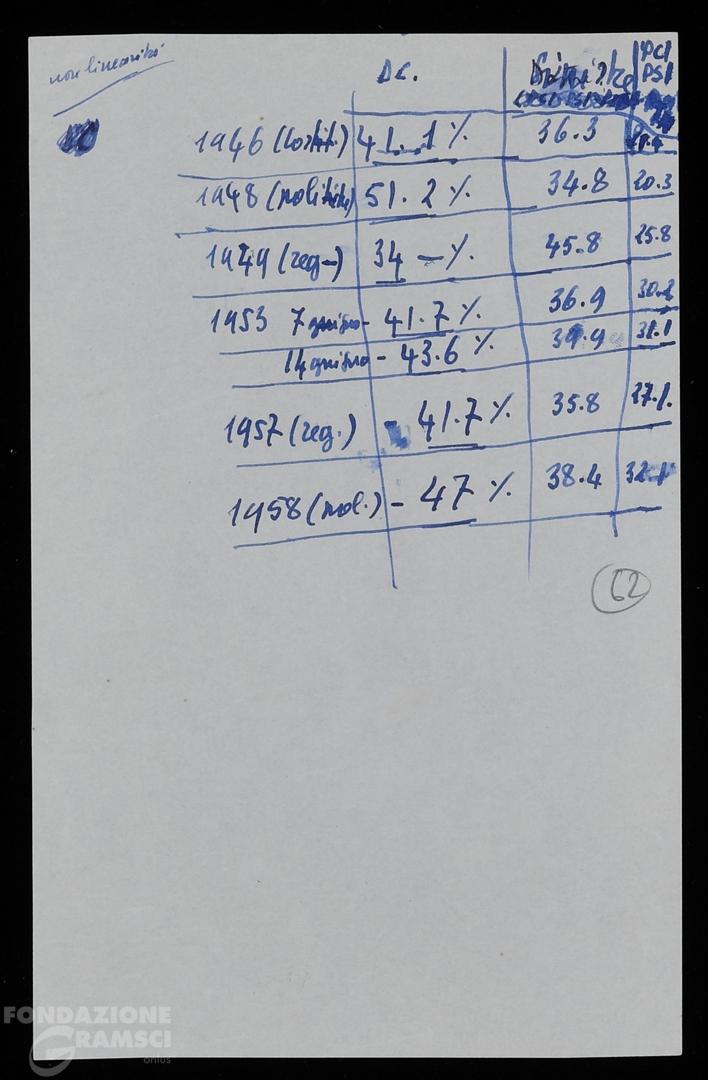 non linearità
DC. Sinistre PCI
PSI
1946 (Costit.) 41.1 % 36.3
1948 (politiche) 51.2 % 34.8 20.3
1949 (reg–) 34 – % 45.8 25.8
1953 7 giugno - 41.7 % 36.9 30.2
14 giugno - 43.6 % 39.9 31.1
1957 (reg.) 41.7 % 35.8 27.1.
1958 (pol.) - 47 % 38.4 32.1
62
FONDAZIONE
GRAMSCI
onlus